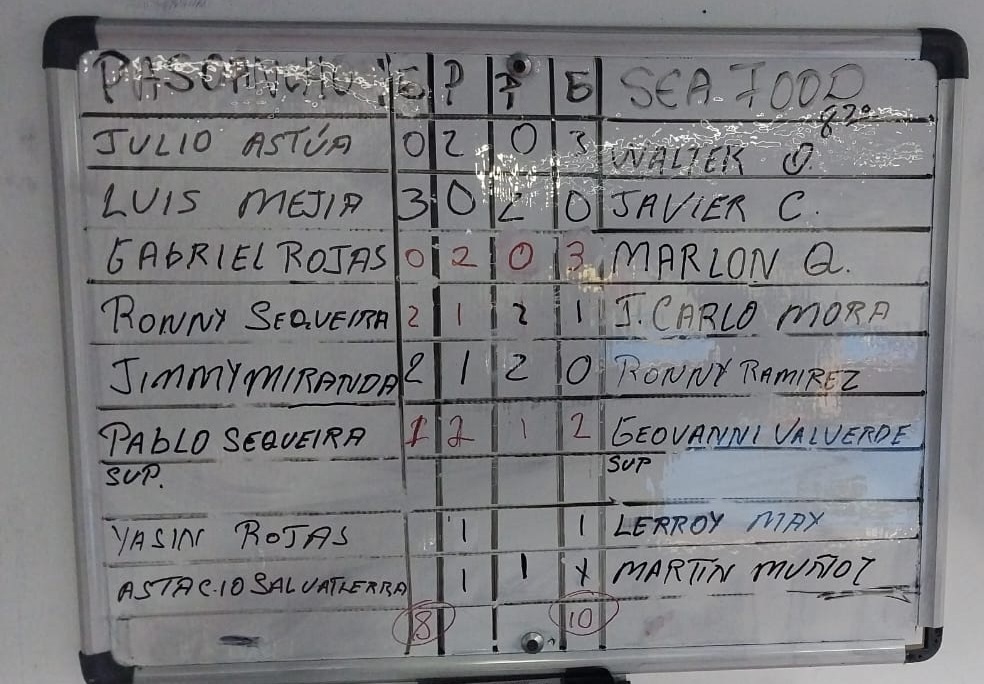 G P P G SEA FOOD
820
JULIO ASTÚA 0 2 0 3 WALTER O.
LUIS MEJIA 3 0 2 0 JAVIER C.
GABRIEL ROJAS 0 2 0 3 MARLON Q.
RONNY SEQUEIRA 2 1 2 1 J. CARLO MORA
JIMMY MIRANDA 2 1 2 0 RONNY RAMIREZ
PABLO SEQUEIRA 1 2 1 2 GEOVANNI VALVERDE
SUP. SUP
YASIN ROJAS 1 1 LERROY MAX
ASTACIO SALVATIERRA 1 1 MARTIN MUÑOZ
8 10